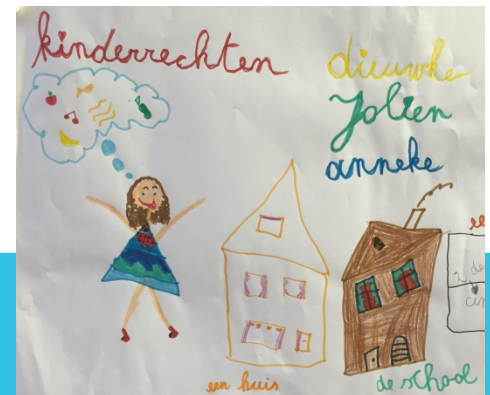 kinderrechten
dieuwke
Jolien
anneke
een huis
de school